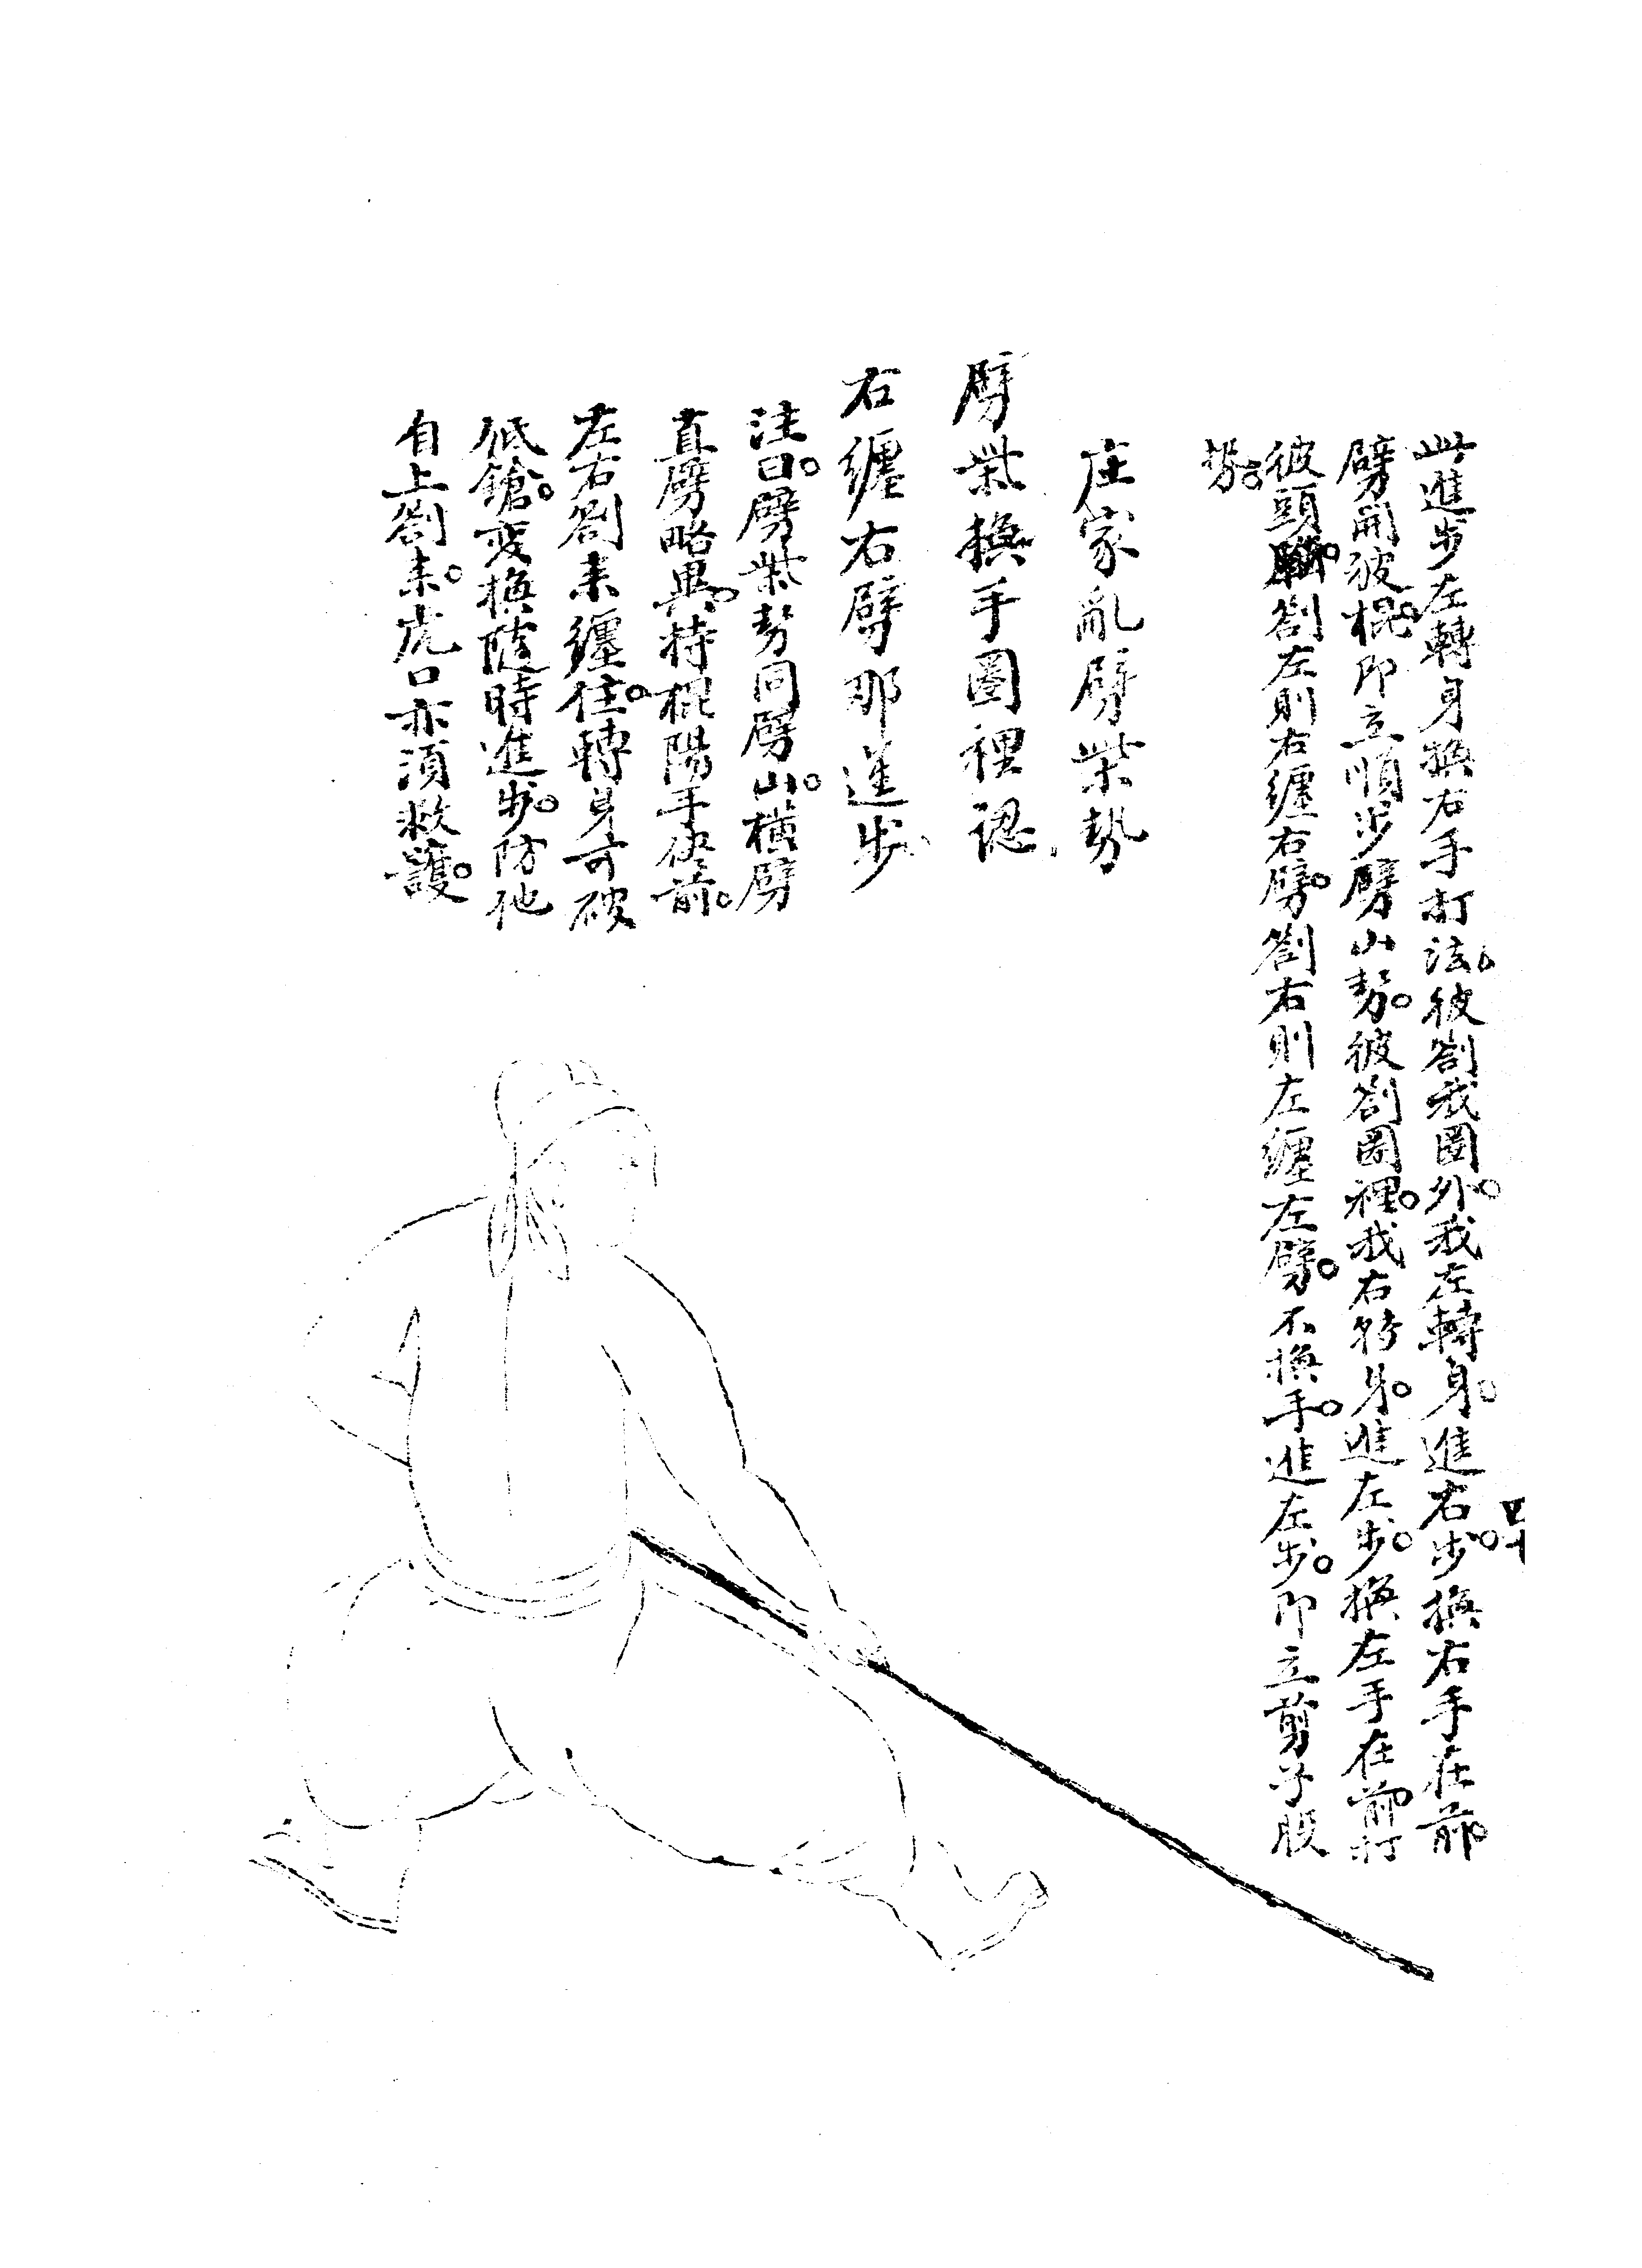 此進步左轉身換右手打法。彼劄我圈外。我左轉身。進右步。換右手在前
劈開彼棍。即立順步劈山勢。彼劄圈裡。我右轉身。進左步。換左手在前。打
彼頭腦。劄左則右纏右劈。劄右則左纏左劈。不換手。進左步。即立剪子股
勢。
庄家亂劈柴勢
劈柴換手圈裡認
右纏右劈那進步
注曰。劈柴勢同劈山。橫劈
直劈略異。持棍陽手使前。
左右劄来纏住。轉身可破
低鎗。变換随時進步。防他
自上劄来。虎口亦須救護。